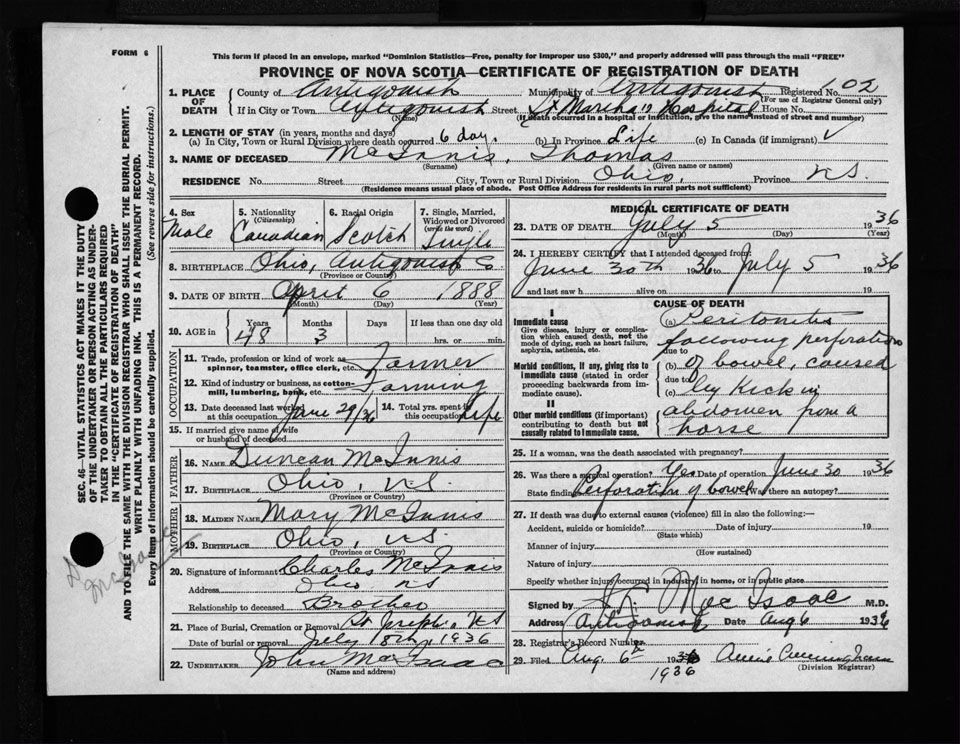 FORM 6
This form if placed in an envelope, marked "Dominion Statistics—Free, penalty for improper use $300," and properly addressed will pass through the mail "FREE"
PROVINCE OF NOVA SCOTIA—CERTIFICATE OF REGISTRATION OF DEATH
1. PLACE OF DEATH
County of Antigonish Municipality of Antigonish Registered No. 02
(For use of Registrar General only)
If in City or Town Antigonish Street St Martha's Hospital House No.
(Name) (If death occurred in a hospital or institution, give the name instead of street and number)
2. LENGTH OF STAY (in years, months and days)
(a) In City, Town or Rural Division where death occurred 6 day. (b) In Province Life (c) In Canada (if immigrant) ✓
3. NAME OF DECEASED McInnis, Thomas
(Surname) (Given name or names)
RESIDENCE No. Street City, Town or Rural Division Ohio, Province N.S.
(Residence means usual place of abode. Post Office Address for residents in rural parts not sufficient)
4. Sex
Male
5. Nationality
(Citizenship)
Canadian
6. Racial Origin
Scotch
7. Single, Married, Widowed or Divorced
(write the word)
Single
8. BIRTHPLACE Ohio, Antigonish Co
(Province or County)
9. DATE OF BIRTH April 6 1888
(Month) (Day) (Year)
10. AGE in
Years Months Days If less than one day old
48 3 hrs. or min.
OCCUPATION
11. Trade, profession or kind of work as spinner, teamster, office clerk, etc. Farmer
12. Kind of industry or business, as cotton-mill, lumbering, bank, etc. Farming
13. Date deceased last worked at this occupation June 29/36
14. Total yrs. spent in this occupation Life
15. If married give name of wife or husband of deceased
FATHER
16. NAME Duncan McInnis
17. BIRTHPLACE Ohio, N.S.
(Province or Country)
MOTHER
18. MAIDEN NAME Mary McInnis
19. BIRTHPLACE Ohio, N.S.
(Province or Country)
20. Signature of informant Charles McInnis
Address Ohio NS
Relationship to deceased Brother
21. Place of Burial, Cremation or Removal St Joseph's NS
Date of burial or removal July 18th, 1936
22. UNDERTAKER John MacIsaac
(Name and address)
MEDICAL CERTIFICATE OF DEATH
23. DATE OF DEATH July 5 1936
(Month) (Day) (Year)
24. I HEREBY CERTIFY that I attended deceased from:
June 30th 1936 to July 5 1936
and last saw h alive on 19
CAUSE OF DEATH
I
Immediate cause
Give disease, injury or complication which caused death, not the mode of dying, such as heart failure, asphyxia, asthenia, etc.
Morbid conditions, if any, giving rise to immediate cause (stated in order proceeding backwards from immediate cause).
II
Other morbid conditions (if important) contributing to death but not causally related to immediate cause.
(a) Peritonitis
following perforation
due to
(b) of bowel, caused
due to
(c) by Kick in
abdomen from a
horse
25. If a woman, was the death associated with pregnancy?
26. Was there a surgical operation? Yes Date of operation June 30 1936
State finding Perforation of bowel Was there an autopsy?
27. If death was due to external causes (violence) fill in also the following:—
Accident, suicide or homicide? Date of injury 19
(State which)
Manner of injury
(How sustained)
Nature of injury
Specify whether injury occurred in industry, in home, or in public place
Signed by Mac Isaac M.D.
Address Antigonish Date Aug 6 1936
28. Registrar's Record Number
29. Filed Aug. 6th 1936 Annie Cunningham
1936 (Division Registrar)
SEC. 46—VITAL STATISTICS ACT MAKES IT THE DUTY OF THE UNDERTAKER OR PERSON ACTING AS UNDERTAKER TO OBTAIN ALL THE PARTICULARS REQUIRED IN THE "CERTIFICATE OF REGISTRATION OF DEATH" AND TO FILE THE SAME WITH THE DIVISION REGISTRAR WHO SHALL ISSUE THE BURIAL PERMIT.
WRITE PLAINLY WITH UNFADING INK. THIS IS A PERMANENT RECORD.
Every item of information should be carefully supplied. (See reverse side for instructions.)